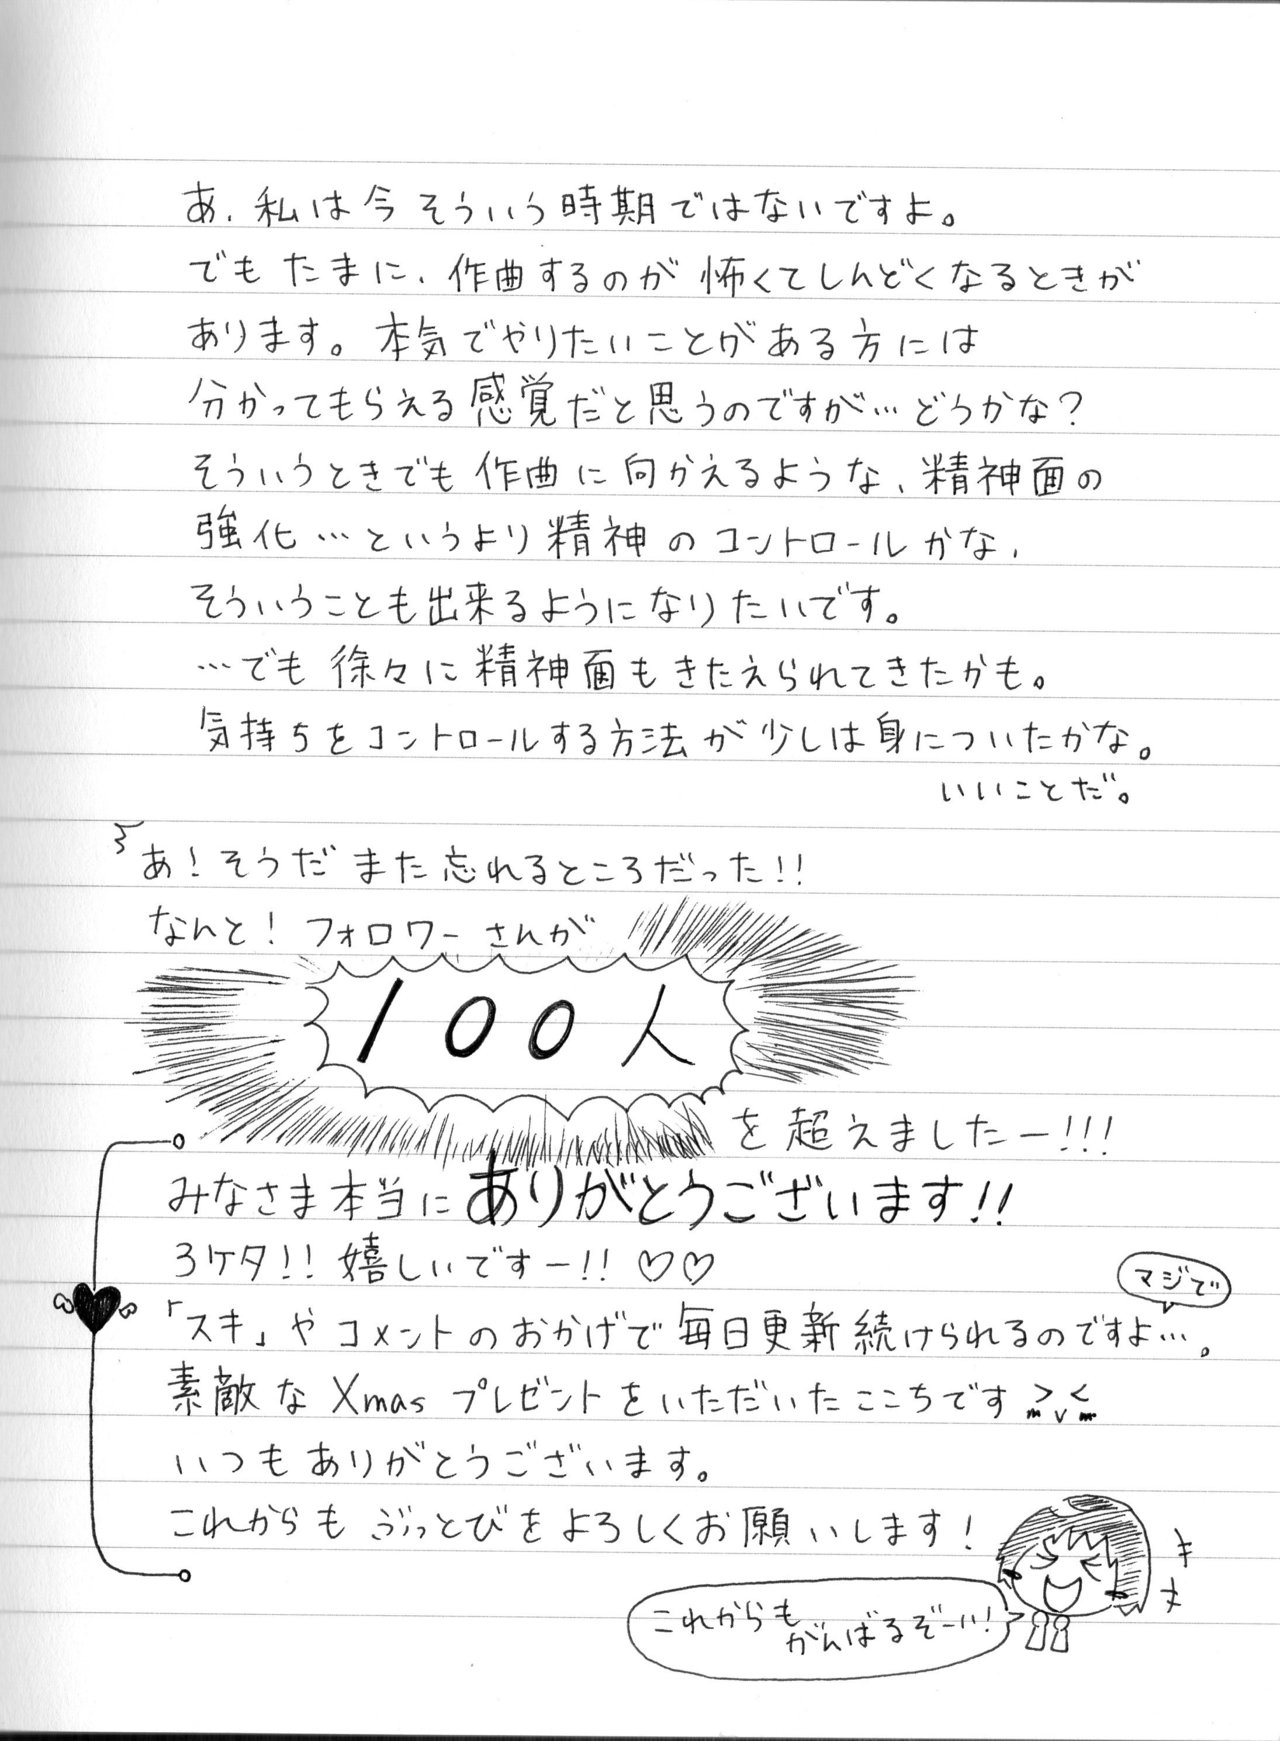 あ、私は今そういう時期ではないですよ。
でもたまに、作曲するのが怖くてしんどくなるときが
あります。本気でやりたいことがある方には
分かってもらえる感覚だと思うのですが…どうかな？
そういうときでも作曲に向かえるような、精神面の
強化…というより精神のコントロールかな、
そういうことも出来るようになりたいです。
…でも徐々に精神面もきたえられてきたかも。
気持ちをコントロールする方法が少しは身についたかな。
いいことだ。
あ！そうだまた忘れるところだった!!
なんと！フォロワーさんが
100人
を超えましたー!!!
みなさま本当にありがとうございます!!
3ケタ!!嬉しいですー!!♡♡
マジで
「スキ」やコメントのおかげで毎日更新続けられるのですよ…。
素敵なXmasプレゼントをいただいたここちです
いつもありがとうございます。
これからもぶっとびをよろしくお願いします！
キャ
これからも
がんばるぞーい！